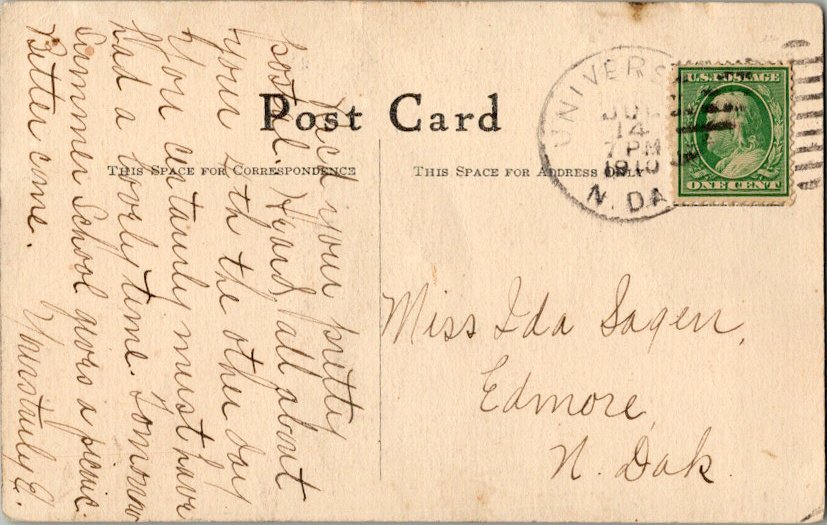 Post Card
THIS SPACE FOR CORRESPONDENCE
THIS SPACE FOR ADDRESS ONLY
UNIVERS
JUL
14
7 PM
1910
N. DA
U.S. POSTAGE
ONE CENT
Rec'd your pretty
postal. Heard all about
your 4th the other day
You certainly must have
had a lovely time. Tomorrow
Summer School gives a picnic.
Better come.
Yourstruly E.
Miss Ida Sagen,
Edmore,
N. Dak.